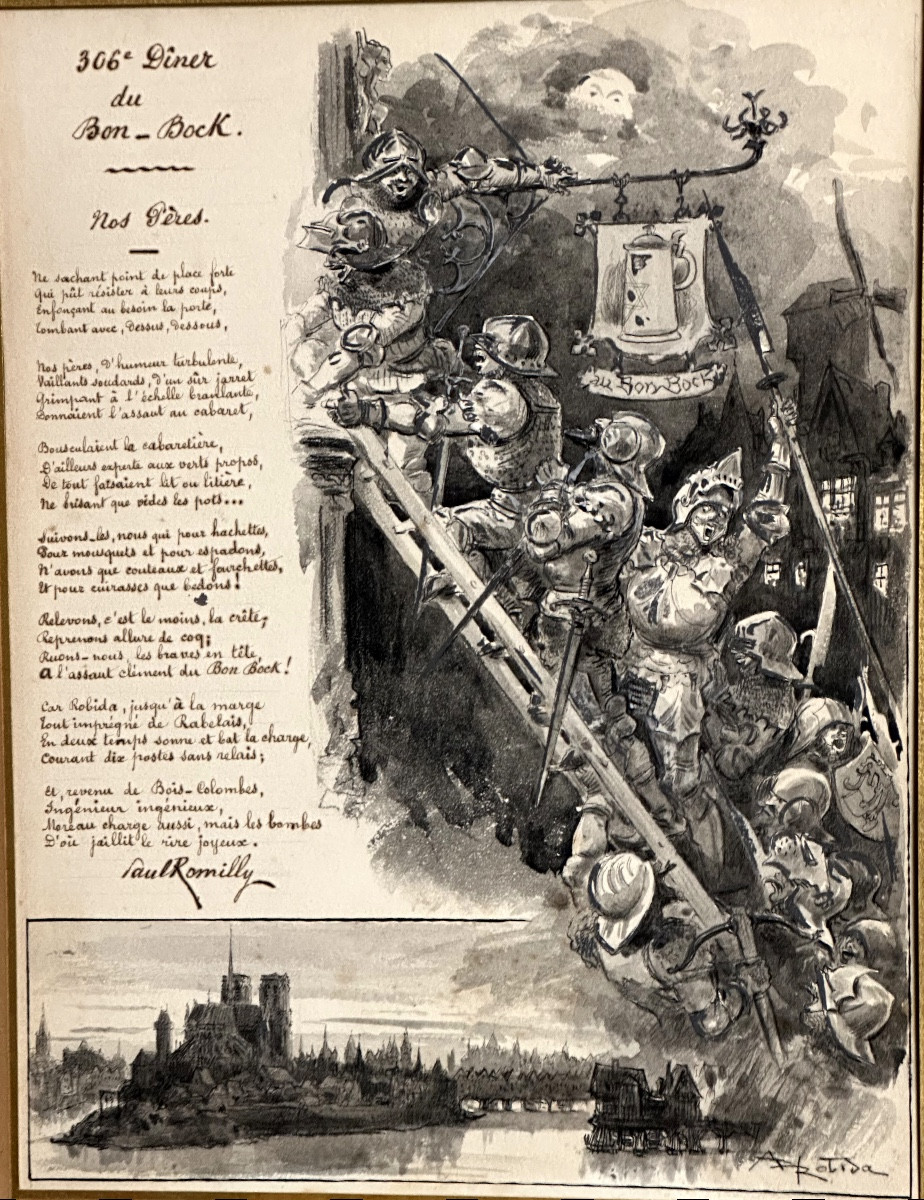 306e Dîner
du
Bon-Bock.
Nos Pères.
Ne sachant point de place forte
Qui pût résister à leurs coups,
Enfonçant au besoin la porte,
Tombant avec, dessus, dessous,
Nos pères, d'humeur turbulente,
Vaillants soudards, d'un sûr jarret
Grimpant à l'échelle branlante,
Donnaient l'assaut au cabaret,
Bousculaient la cabaretière,
D'ailleurs experte aux verts propos,
De tout faisaient lit ou litière,
Ne brisant que vides les pots...
Suivons-les, nous qui pour hachettes,
Pour mousquets et pour espadons,
N'avons que couteaux et fourchettes,
Et pour cuirasses que bedons!
Relevons, c'est le moins, la crête,
Reprenons allure de coq;
Ruons-nous, les braves en tête,
A l'assaut clément du Bon Bock!
Car Robida, jusqu'à la marge
Tout imprégné de Rabelais,
En deux temps sonne et bat la charge,
Courant dix postes sans relais;
Et, revenu de Bois-Colombes,
Ingénieur ingénieux,
Moreau charge aussi, mais les bombes
D'où jaillit le rire joyeux.
Paul Romilly
au Bon Bock
A Robida